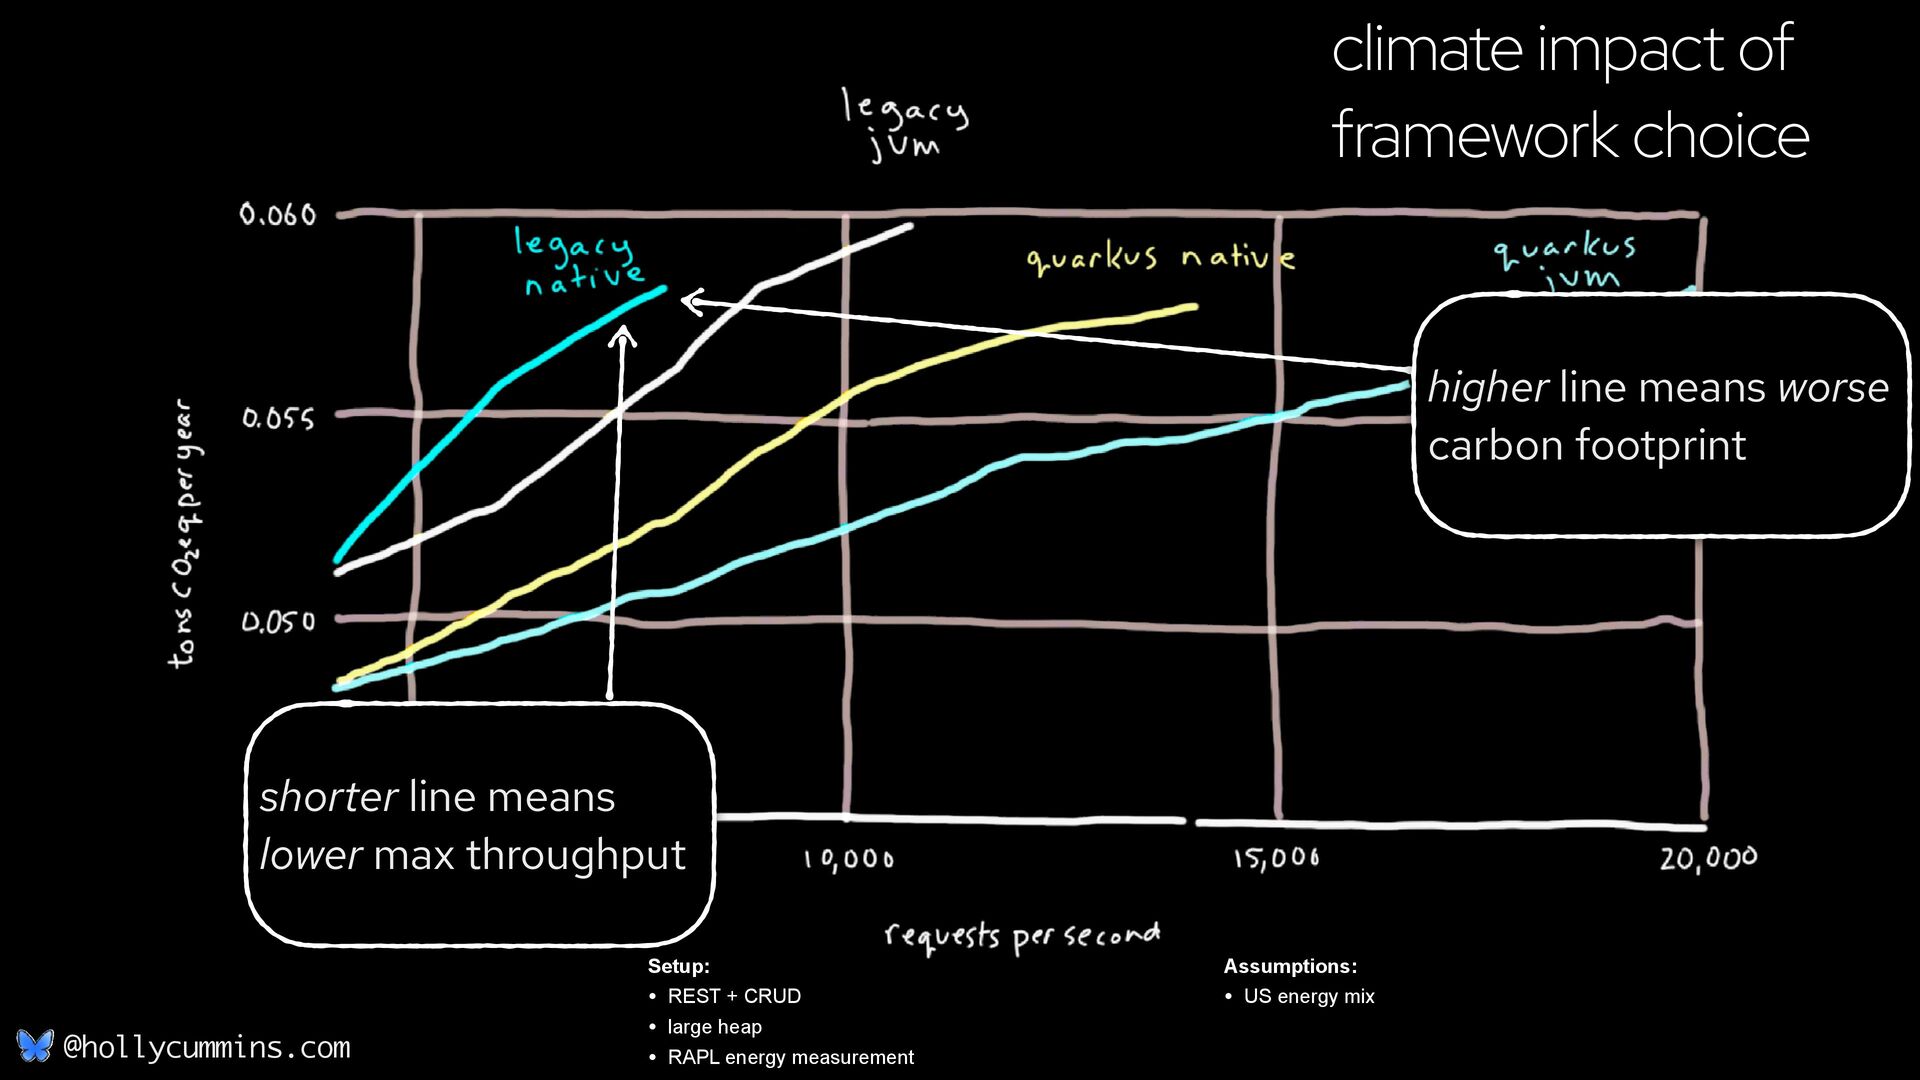 climate impact of
framework choice
legacy
jvm
0.060
legacy
native
quarkus native
quarkus
jvm
higher line means worse
carbon footprint
0.055
tons CO2eq per year
0.050
shorter line means
lower max throughput
10,000
15,000
20,000
requests per second
Setup:
• REST + CRUD
• large heap
• RAPL energy measurement
Assumptions:
• US energy mix
@hollycummins.com